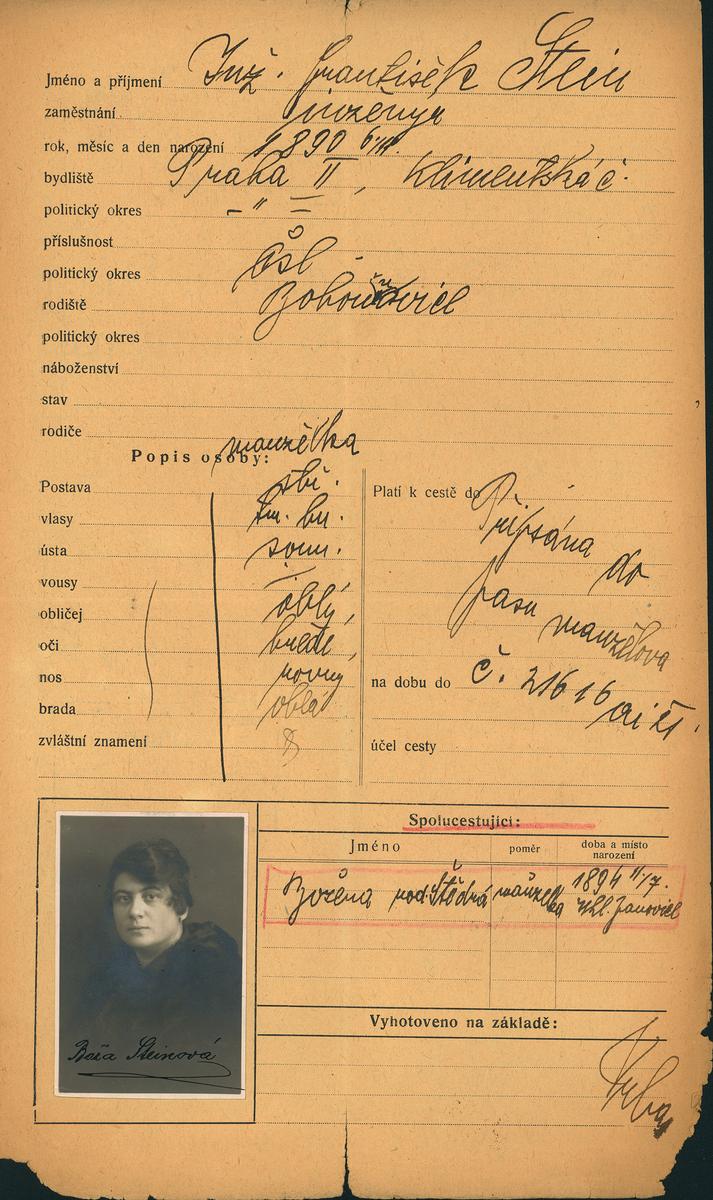 Jméno a příjmení Inž. František Stein
zaměstnání inženýr
rok, měsíc a den narození 1890
bydliště Praha II, Klimentská č.
politický okres – " –
příslušnost čsl
politický okres
rodiště
politický okres
náboženství
stav
rodiče
manželka
Popis osoby:
Postava stř.
vlasy tm. hn.
ústa soum.
vousy –
obličej oblý,
oči hnědé,
nos rovný
brada oblá
zvláštní znamení
Platí k cestě do Připsána do
pasu manželova
na dobu do č. 21616
účel cesty
Spolucestující:
Jméno poměr doba a místo narození
Božena roz. Štědrá manželka 1894 11/7.
Uhl. Janovice
Vyhotoveno na základě:
Vrba
Báža Steinová